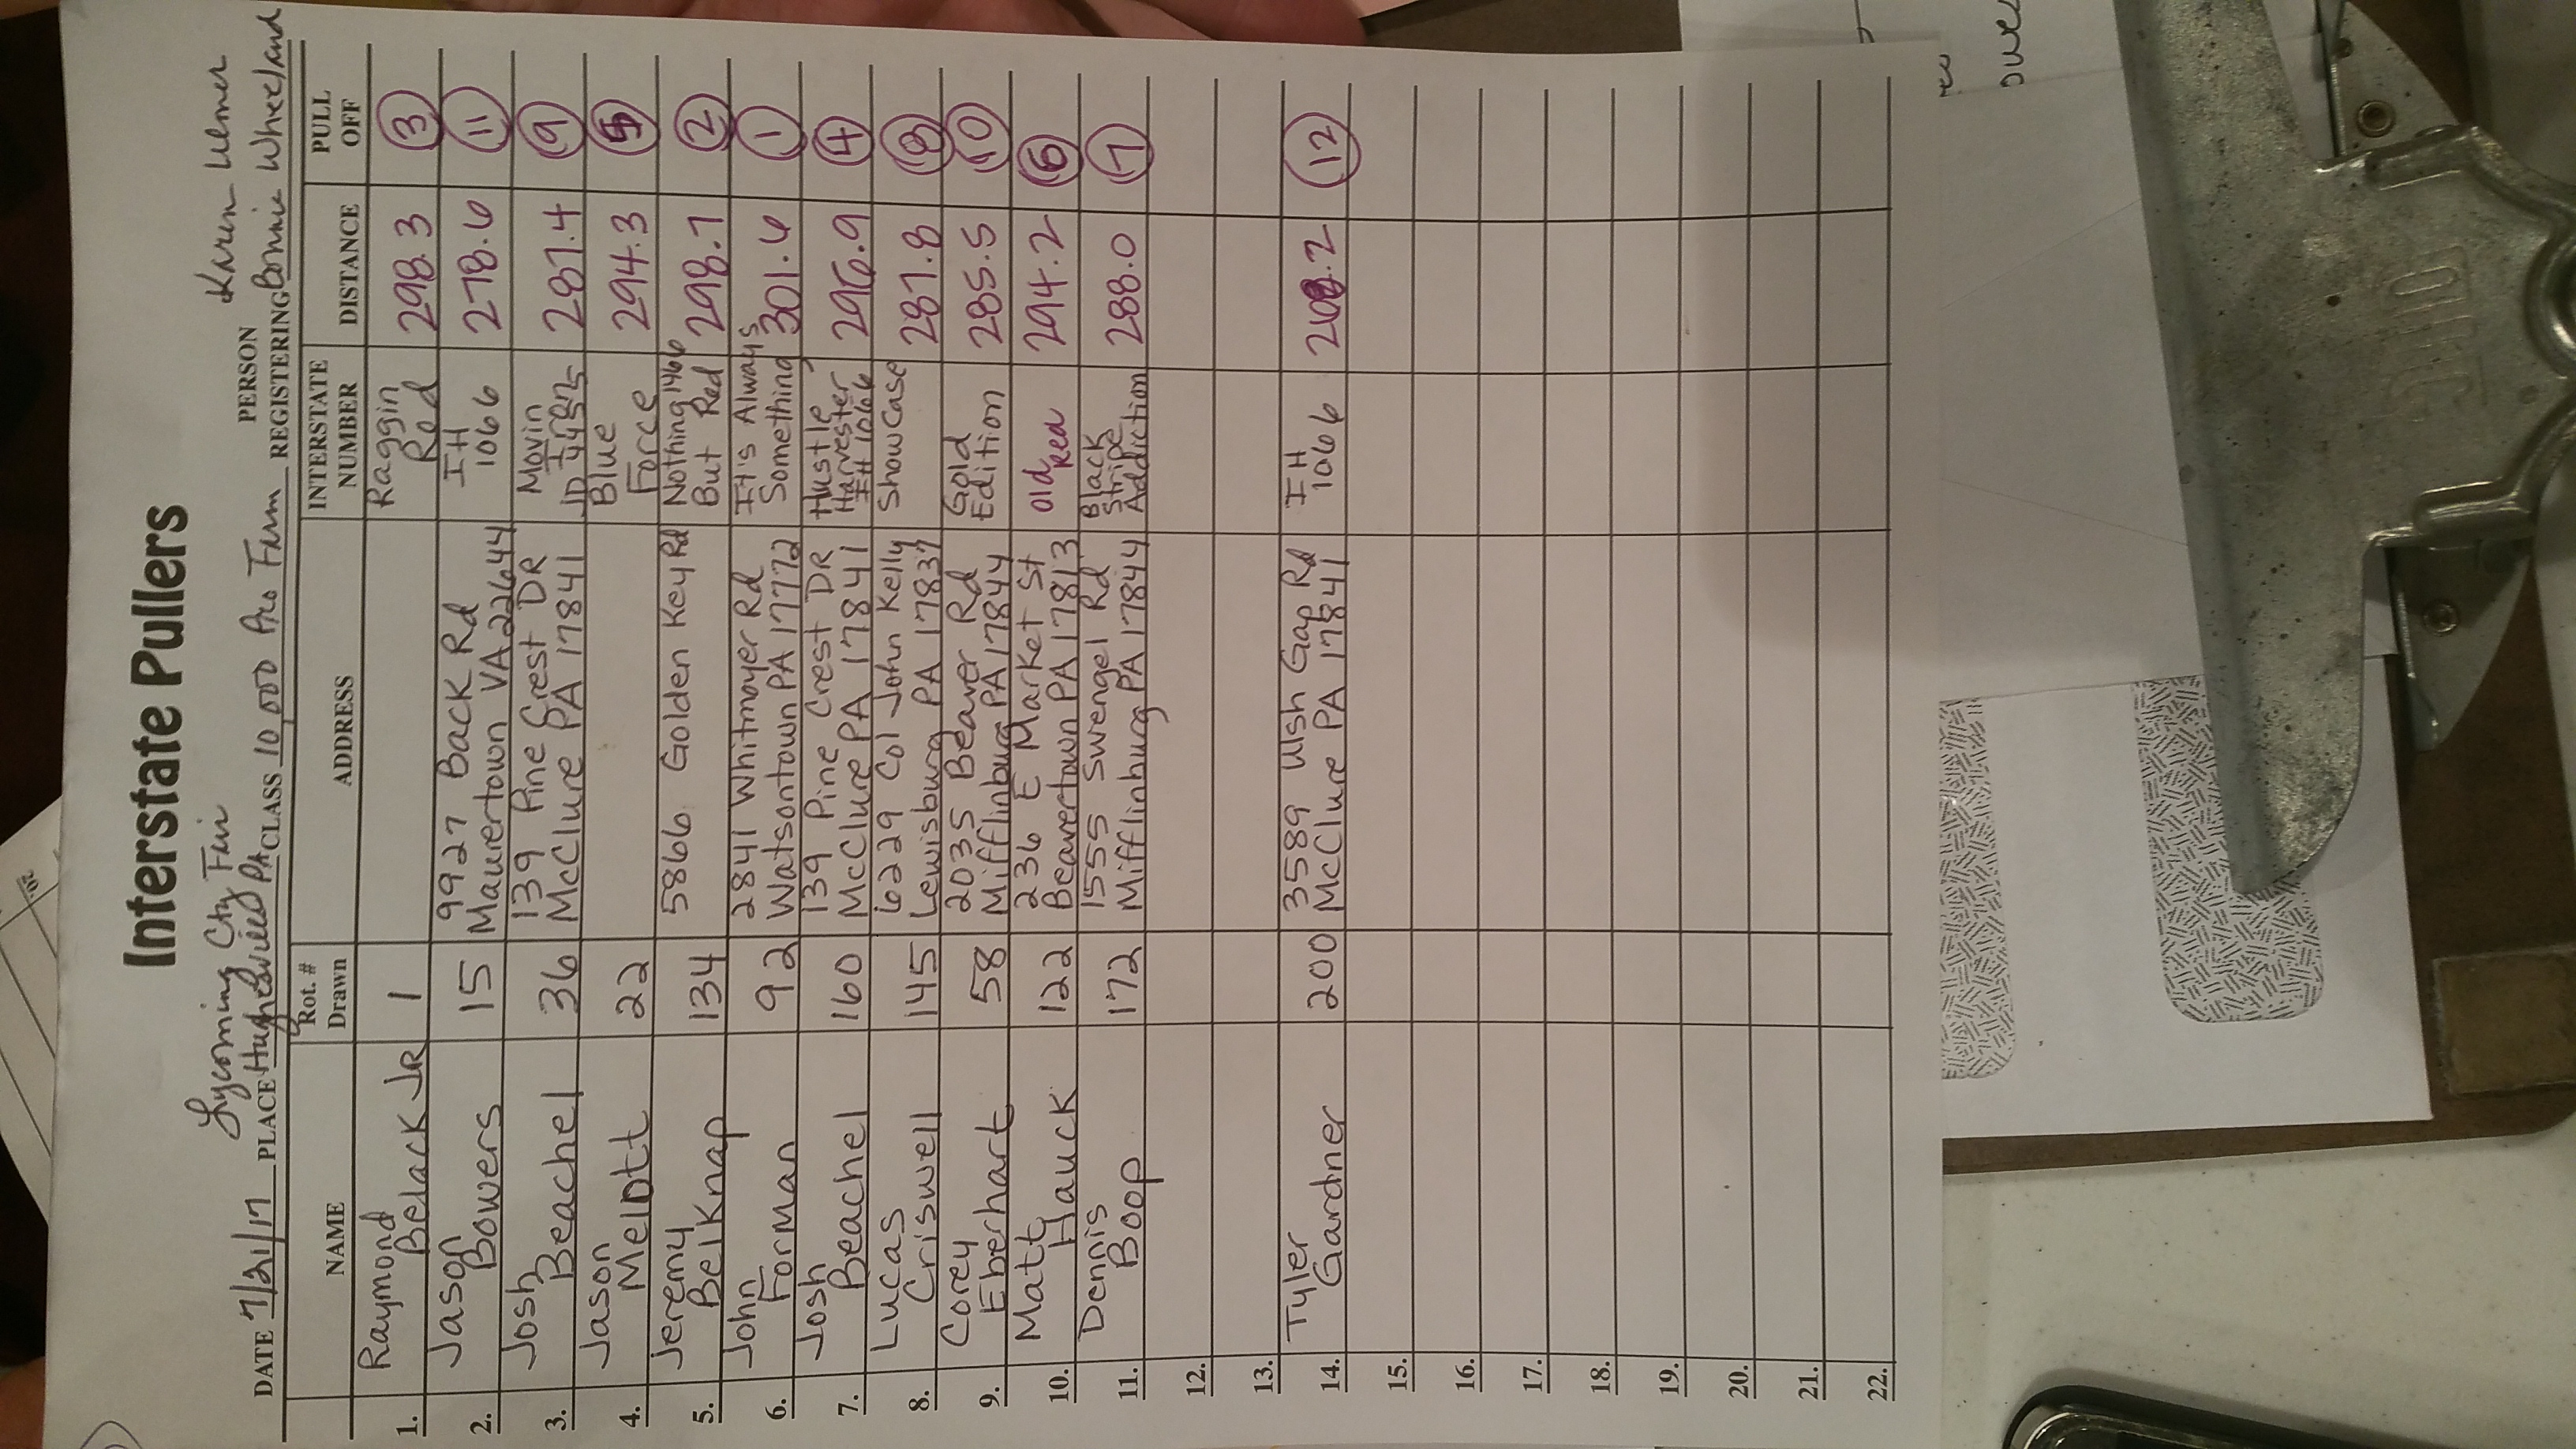 Interstate Pullers
Lycoming Cty Fair
Karen Ulmer
DATE 7/21/17 PLACE Hughesville PA CLASS 10,000 Pro Farm PERSON REGISTERING Bonnie Wheeland
NAME Rot. # Drawn ADDRESS INTERSTATE NUMBER DISTANCE PULL OFF
1. Raymond Belack JR 1 Raggin Red 298.3 3
2. Jason Bowers 15 9927 Back Rd Maurertown VA 22644 IH 1066 278.6 11
3. Josh Beachel 36 139 Pine Crest DR McClure PA 17841 Movin Iron JD 4455 287.4 9
4. Jason Mellott 22 Blue Force 294.3 5
5. Jeremy Belknap 134 5866 Golden Key Rd Nothing 1466 But Red 298.7 2
6. John Forman 92 2841 Whitmoyer Rd Watsontown PA 17772 It's Always Something 301.6 1
7. Josh Beachel 160 139 Pine Crest DR McClure PA 17841 Hustle Harvester IH 1066 296.9 4
8. Lucas Criswell 145 6229 Col John Kelly Lewisburg PA 17837 ShowCase 287.8 8
9. Corey Eberhart 58 2035 Beaver Rd Mifflinburg PA 17844 Gold Edition 285.5 10
10. Matt Hauck 122 236 E Market St Beavertown PA 17813 Old Red 294.2 6
11. Dennis Boop 172 1555 Swengel Rd Mifflinburg PA 17844 Black Stripe Addiction 288.0 7
12.
13.
14. Tyler Gardner 200 3589 Ulsh Gap Rd McClure PA 17841 IH 1066 12
15.
16.
17.
18.
19.
20.
21.
22.